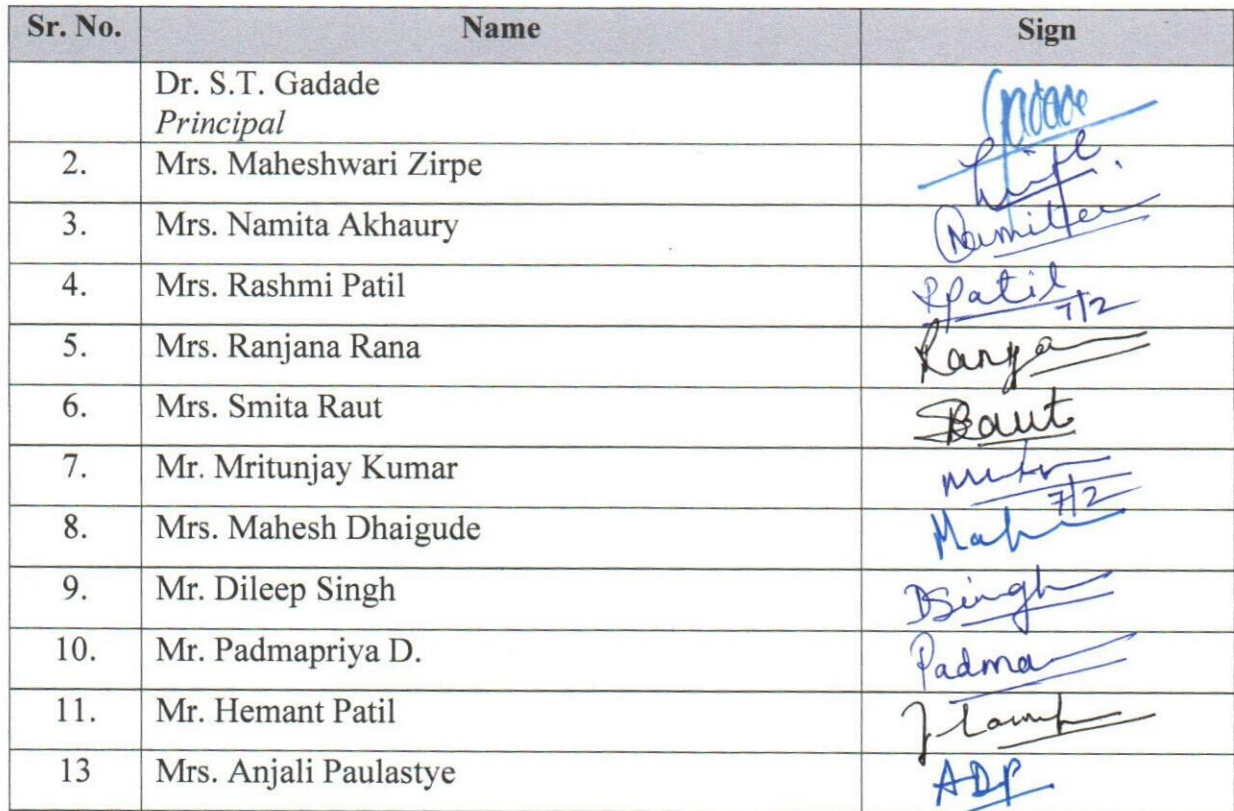 Sr. No. Name Sign
Dr. S.T. Gadade Gadade
Principal
2. Mrs. Maheshwari Zirpe
3. Mrs. Namita Akhaury Namita
4. Mrs. Rashmi Patil RPatil 7/2
5. Mrs. Ranjana Rana
6. Mrs. Smita Raut SRaut
7. Mr. Mritunjay Kumar 7/2
8. Mrs. Mahesh Dhaigude
9. Mr. Dileep Singh DSingh
10. Mr. Padmapriya D. Padma
11. Mr. Hemant Patil
13 Mrs. Anjali Paulastye ADP